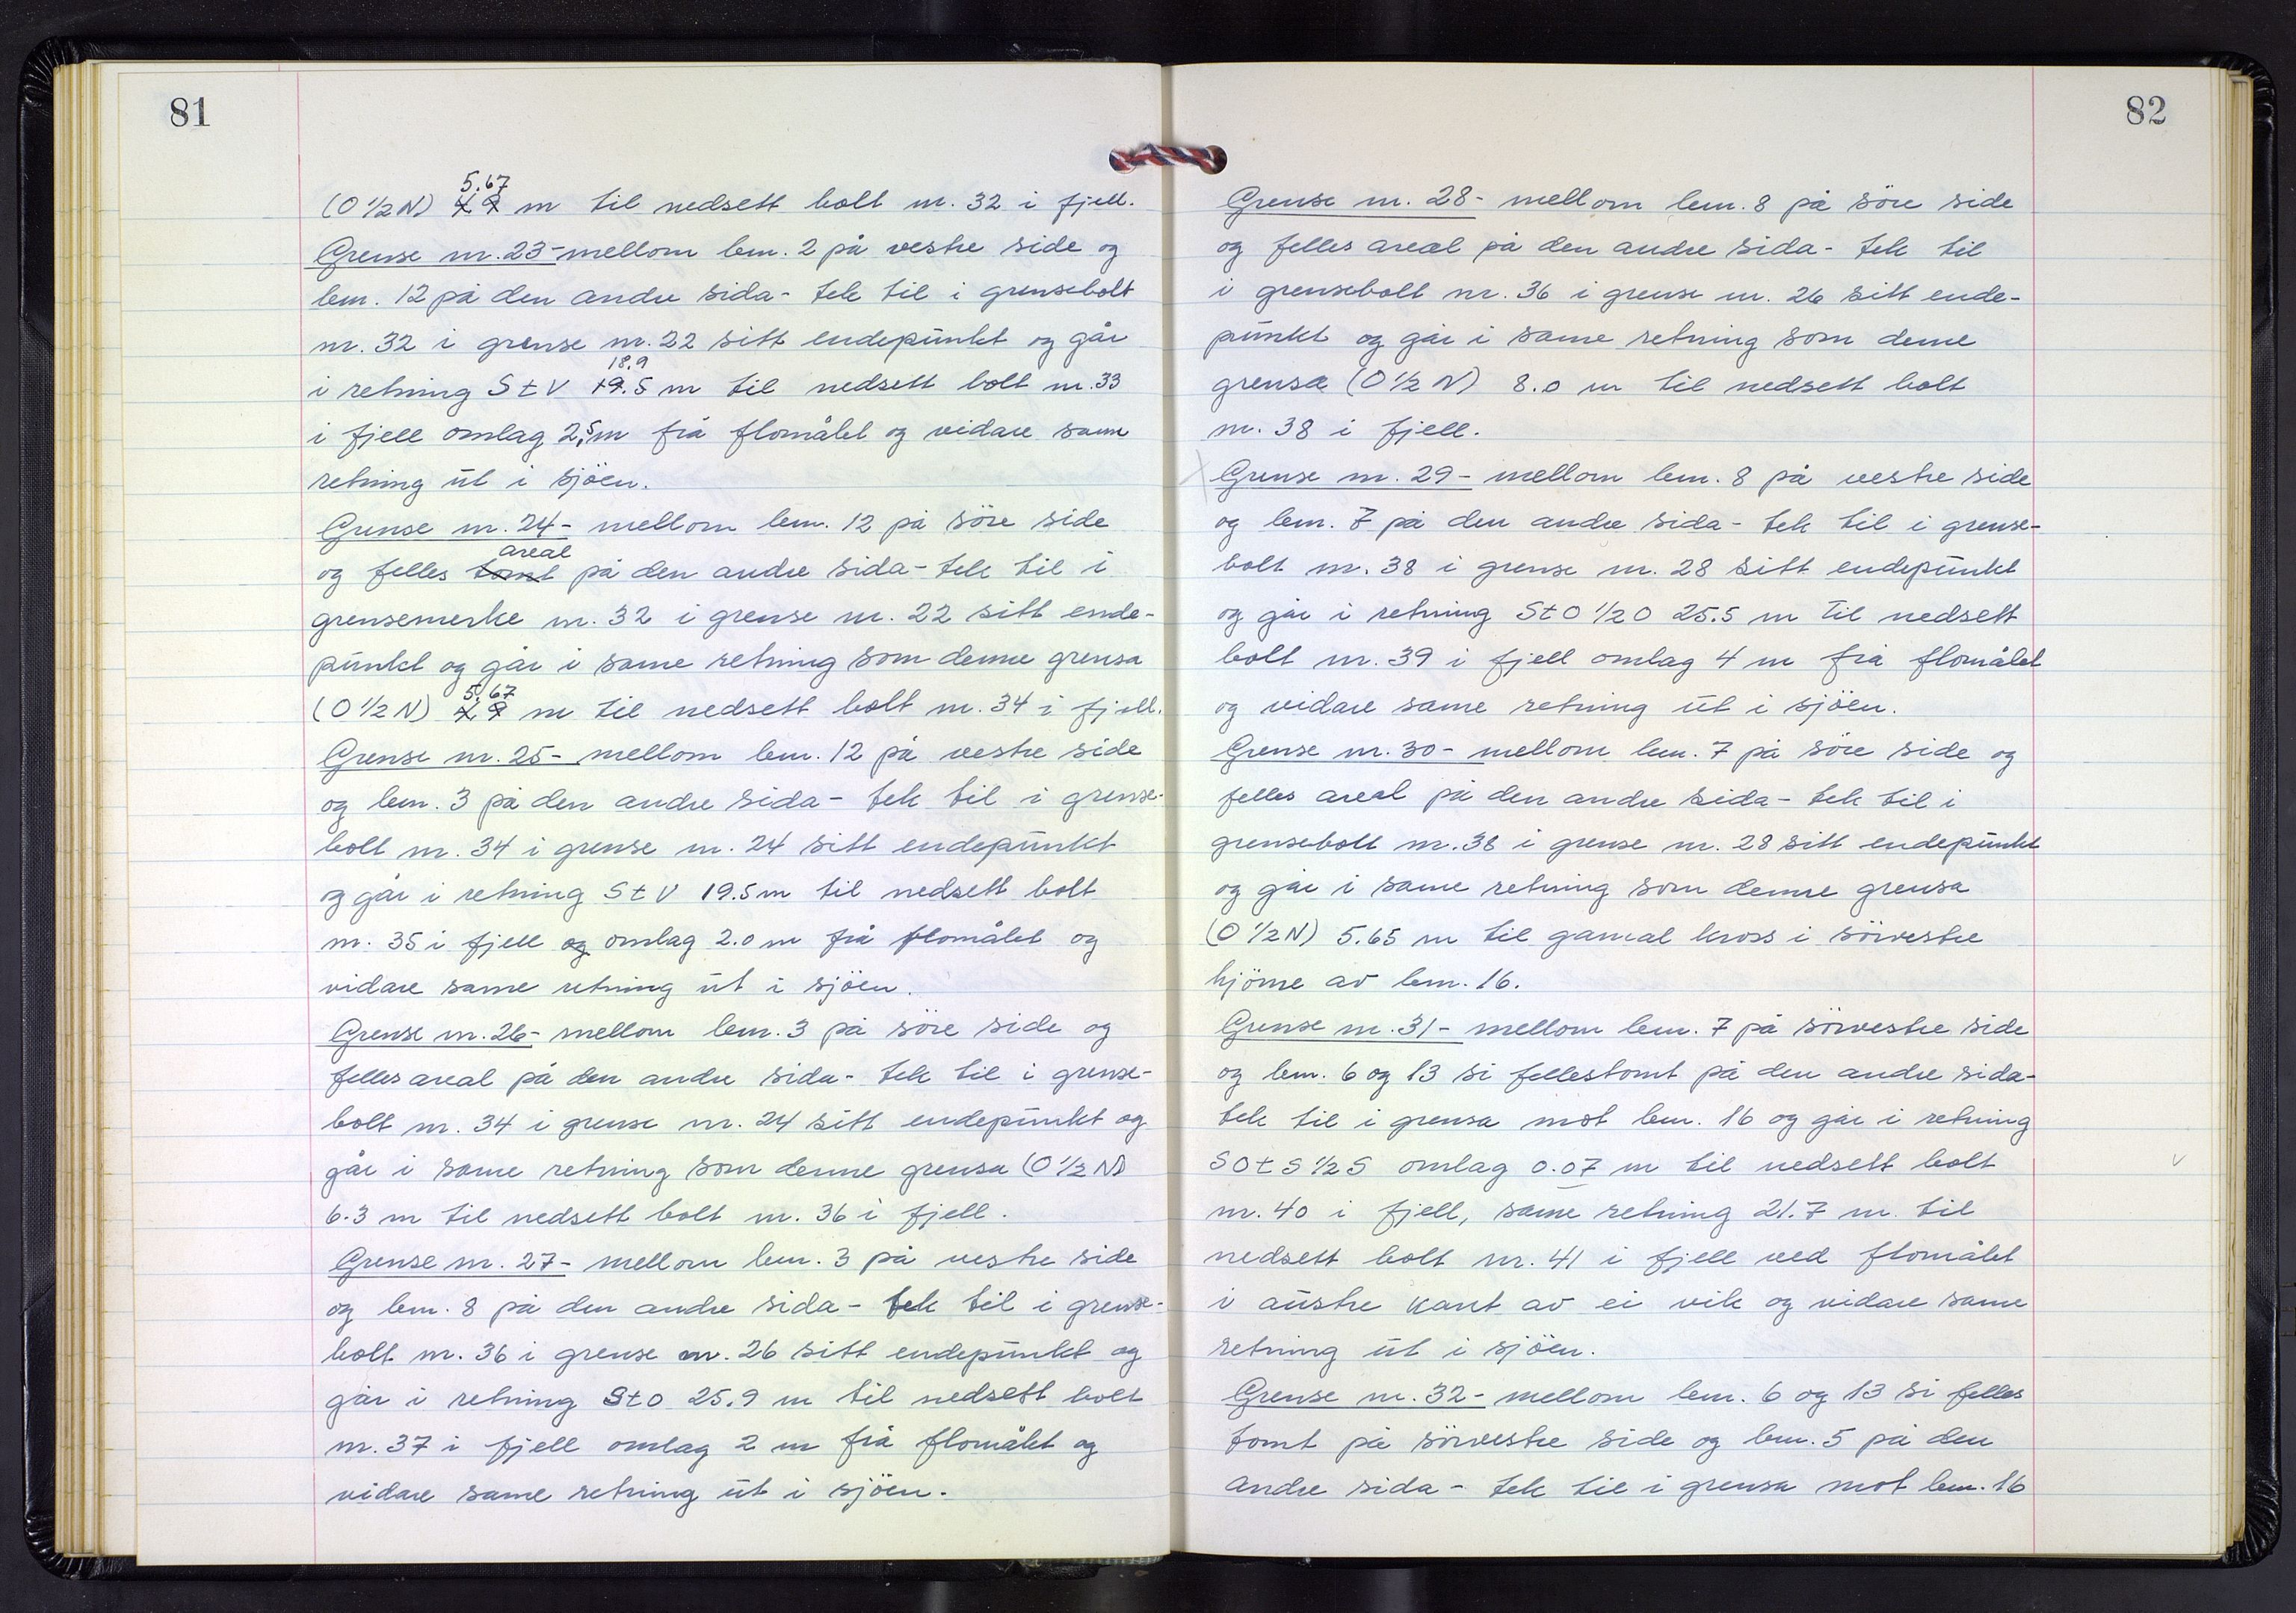 81
(O ½ N) 5.67 m til nedsett bolt nr. 32 i fjell.
Grense nr. 23 - mellom lem. 2 på vestre side og
lem. 12 på den andre sida - tek til i grensebolt
nr. 32 i grense nr. 22 sitt endepunkt og går
i retning S t V 19.5 18.9 m til nedsett bolt nr. 33
i fjell omlag 2,5 m frå flomålet og vidare same
retning ut i sjöen.
Grense nr. 24 - mellom lem. 12 på söre side
og felles tomt areal på den andre sida - tek til i
grensemerke nr. 32 i grense nr. 22 sitt ende-
punkt og går i same retning som denne grensa
(O ½ N) 5.67 m til nedsett bolt nr. 34 i fjell.
Grense nr. 25 - mellom lem. 12 på vestre side
og lem. 3 på den andre sida - tek til i grense-
bolt nr. 34 i grense nr. 24 sitt endepunkt
og går i retning S t V 19.5 m til nedsett bolt
nr. 35 i fjell og omlag 2.0 m frå flomålet og
vidare same retning ut i sjöen.
Grense nr. 26 - mellom lem. 3 på söre side og
felles areal på den andre sida - tek til i grense-
bolt nr. 34 i grense nr. 24 sitt endepunkt og
går i same retning som denne grensa (O ½ N)
6.3 m til nedsett bolt nr. 36 i fjell.
Grense nr. 27 - mellom lem. 3 på vestre side
og lem. 8 på den andre sida - tek til i grense-
bolt nr. 36 i grense nr. 26 sitt endepunkt og
går i retning S t O 25.9 m til nedsett bolt
nr. 37 i fjell omlag 2 m frå flomålet og
vidare same retning ut i sjöen.
82
Grense nr. 28 - mellom lem. 8 på söre side
og felles areal på den andre sida - tek til
i grensebolt nr. 36 i grense nr. 26 sitt ende-
punkt og går i same retning som denne
grensa (O ½ N) 8.0 m til nedsett bolt
nr. 38 i fjell.
Grense nr. 29 - mellom lem. 8 på vestre side
og lem. 7 på den andre sida - tek til i grense-
bolt nr. 38 i grense nr. 28 sitt endepunkt
og går i retning S t O ½ O 25.5 m til nedsett
bolt nr. 39 i fjell omlag 4 m frå flomålet
og vidare same retning ut i sjöen.
Grense nr. 30 - mellom lem. 7 på söre side og
felles areal på den andre sida - tek til i
grensebolt nr. 38 i grense nr. 28 sitt endepunkt
og går i same retning som denne grensa
(O ½ N) 5.65 m til gamal kross i sörvestre
hjörne av lem. 16.
Grense nr. 31 - mellom lem. 7 på sörvestre side
og lem. 6 og 13 si fellestomt på den andre sida -
tek til i grensa mot lem. 16 og går i retning
S O t S ½ S omlag 0.07 m til nedsett bolt
nr. 40 i fjell, same retning 21.7 m til
nedsett bolt nr. 41 i fjell ved flomålet
i austre kant av ei vik og vidare same
retning ut i sjöen.
Grense nr. 32 - mellom lem. 6 og 13 si felles
tomt på sörvestre side og lem. 5 på den
andre sida - tek til i grensa mot lem. 16